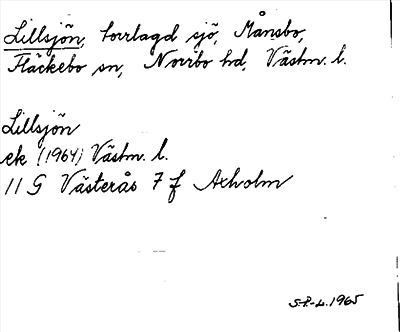 Lillsjön, torrlagd sjö, Månsbo,
Fläckebo sn, Norrbo hd, Västm. l.
Lillsjön
ek (1964) Västm. l.
11 G Västerås 7 f Axholm
S-P-L. 1965